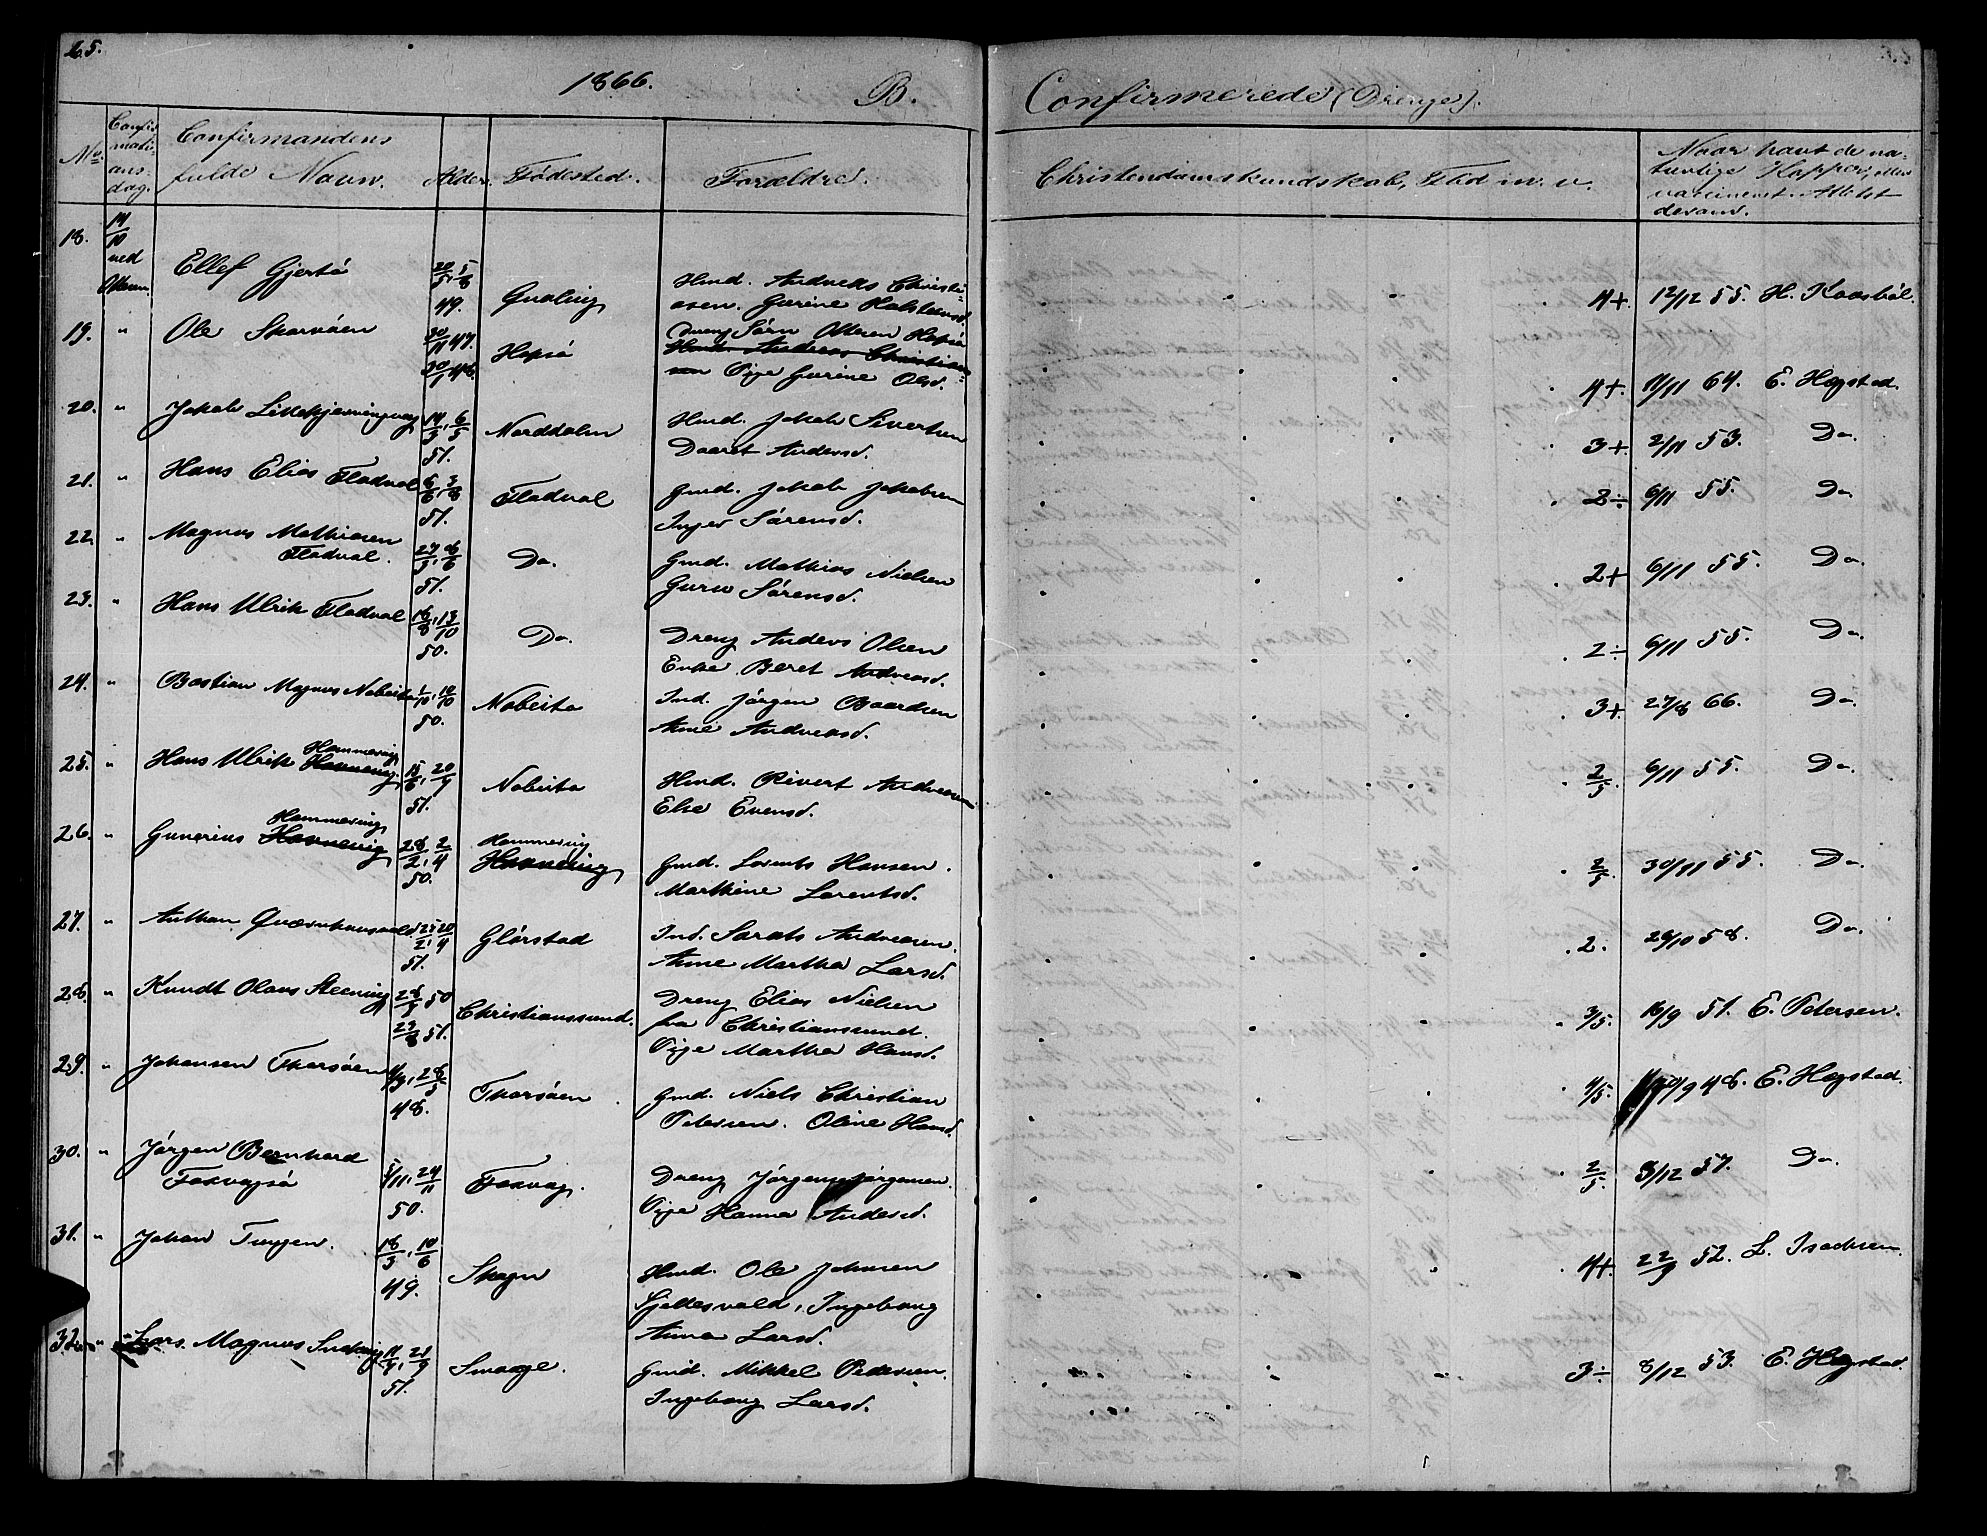 25.
1866.
B.
Confirmerede (Drenge).
No.
Confir-
mati-
ons-
dag.
Confirmandens
fulde Navn.
Alder.
Fødested.
Forældre.
Christendomskundskab, Flid m. v.
Naar havt de na-
turlige Kopper, eller
vaccineret. Attest
derom.
18. 14/10 ved Otteren. Ellef Gjertø 20/5, 5/8 49. Qvaling Hmd. Andreas Christi-
ansen. Gurine Halstensd. 4+ 12/12 55. H. Kaasbøl.
19. " Ole Skarvøen 30/11 47. 20/1 48. Hopsø Dreng Sørn Otteren Hopsø
Hmd. Andreas Christian-
sen Pige Gurine Olsd. 4+. 11/11 64. E. Hegstad.
20. " Jakob 14/3, 6/5 51. Norddalen Hmd. Jakob Sivertsen
Daaret Andersd. 3+. 2/11 53. Do.
21. " Hans Elias Fladval 6/6, 3/8 51. Fladval Gmd. Jakob Jakobsen
Inger Sørensd. 2÷ 6/11 55. Do
22. " Magnus Mathiasen
Fladval. 27/3, 6/6 51. Do. Gmd. Mathias Nielsen
Guru Sørensd. 2+ 6/11 55. Do.
23. " Hans Ulrik Fladval 18/8, 13/10 50. Do. Dreng Anders Olsen
Enke Beret Andreasd. 2÷ 6/11 55. Do.
24. " Bastian Magnus 1/10, 10/10 50. Nobeita Ind. Jørgen Baardsen
Anne Andreasd. 3+. 27/8 66. Do.
25. " Hans Ulrik Hammering 15/6, 20/9 51. Nobeita Hmd. Sivert Andreasen
Else Evensd. 2/5. 6/11 55. Do.
26. " Gunerius Hammering 28/2, 2/4 50. Hammering Gmd. Lorents Hansen.
Marthine Lorentsd. 2/5. 30/11 55. Do.
27. " Anthon 25/2, 20/4 51. Glørstad Ind. Andreasen.
Anne Martha Larsd. 2. 28/10 58. Do.
28. " Knudt Olaus Steening 28/9 50 23/8 51. Christianssund. Dreng Elias Nielsen
fra Christianssund.
Pige Martha Hansd. 3/5. 16/9 51. E. Petersen.
29. " Johansen Thorsøen 4/3, 28/5 48. Thorsøen Gmd. Niels Christian
Petersen. Oline Hansd. 4/5. 20/9 48. E. Hegstad.
30. " Jørgen Bernhard
Foxvagsø 5/11, 24/11 50. Foxvag. Dreng Jørgen Jørgensen.
Pige Hanna Andersd. 2/5. 3/12 57. Do.
31. " Johan Tungen. 18/3, 10/6 49. Skagn Hmd. Ole Johnsen
Sjølsvold, Ingeborg
Anna Larsd. 4+. 22/9 52. L. Isachsen.
32. " Lars Magnus 11/9, 21/9 51. Smage. Gmd. Mikkel Pedersen.
Ingeborg Larsd. 3÷ 8/12 53. E. Hegstad.